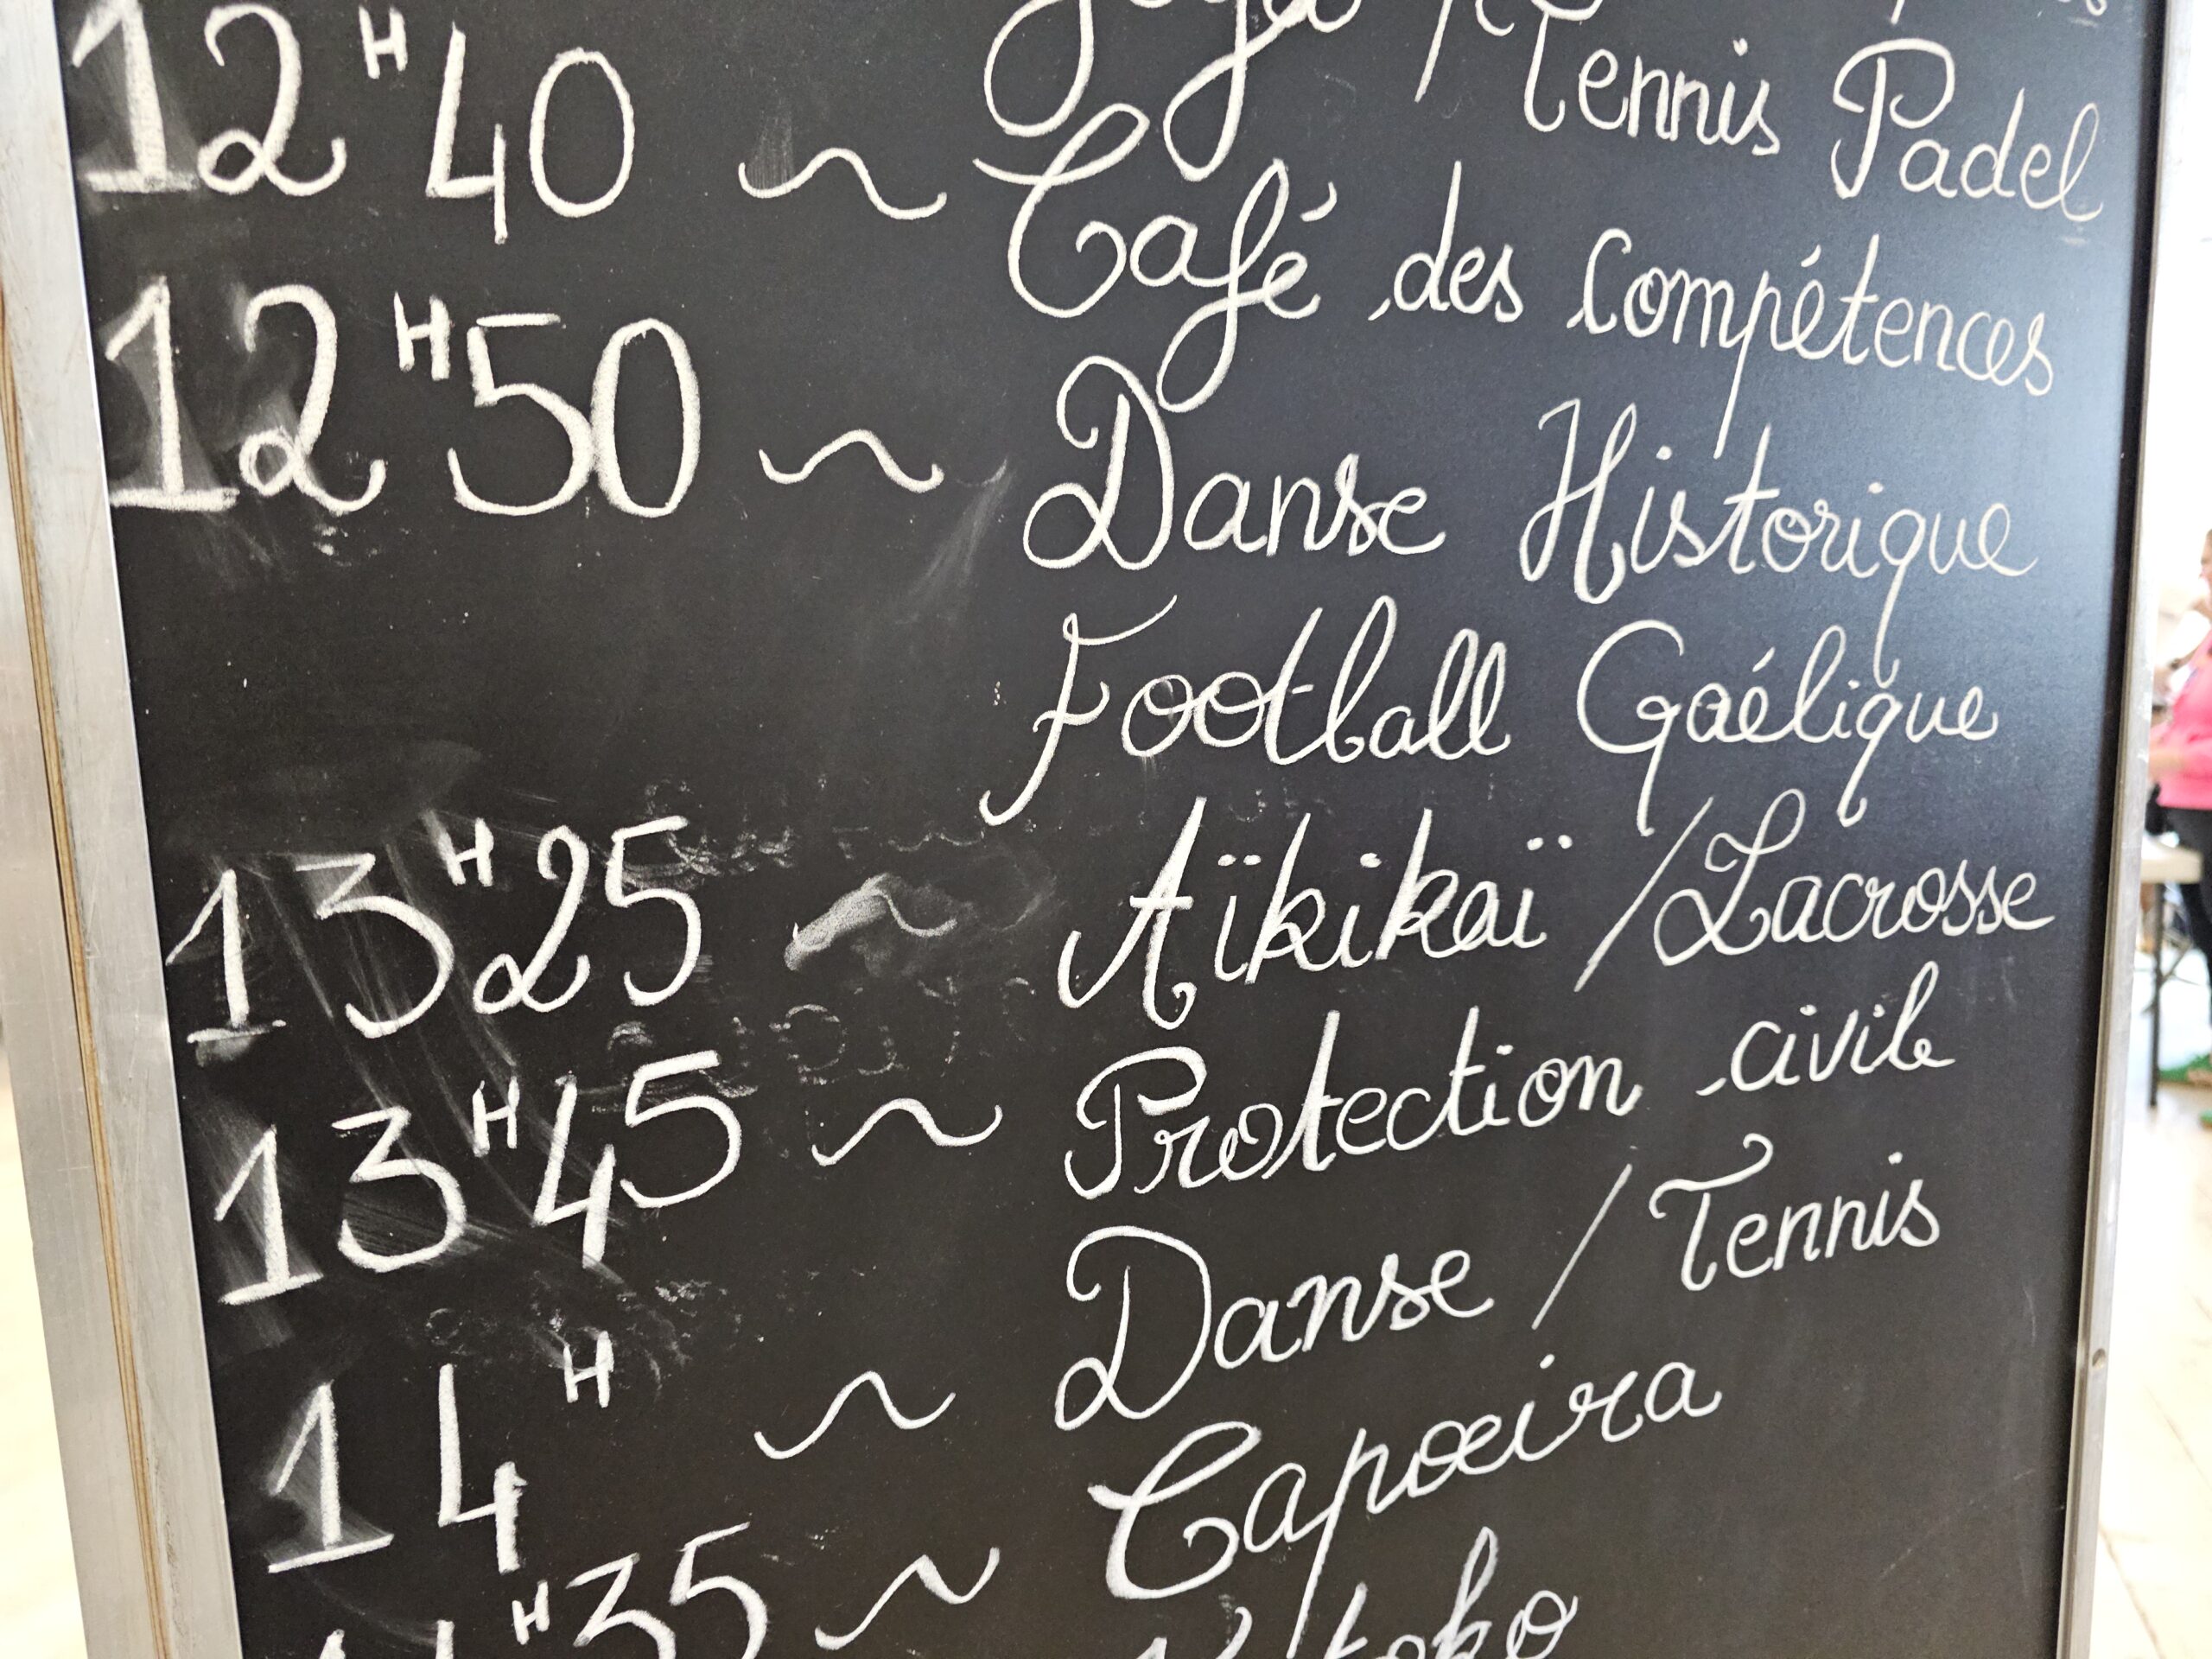 / Tennis Padel
12H40 ~ Café des compétences
12H50 ~ Danse Historique
Football Gaélique
13H25 ~ Aïkikaï / Lacrosse
13H45 ~ Protection civile
14H ~ Danse / Tennis
H35 ~ Capoeira